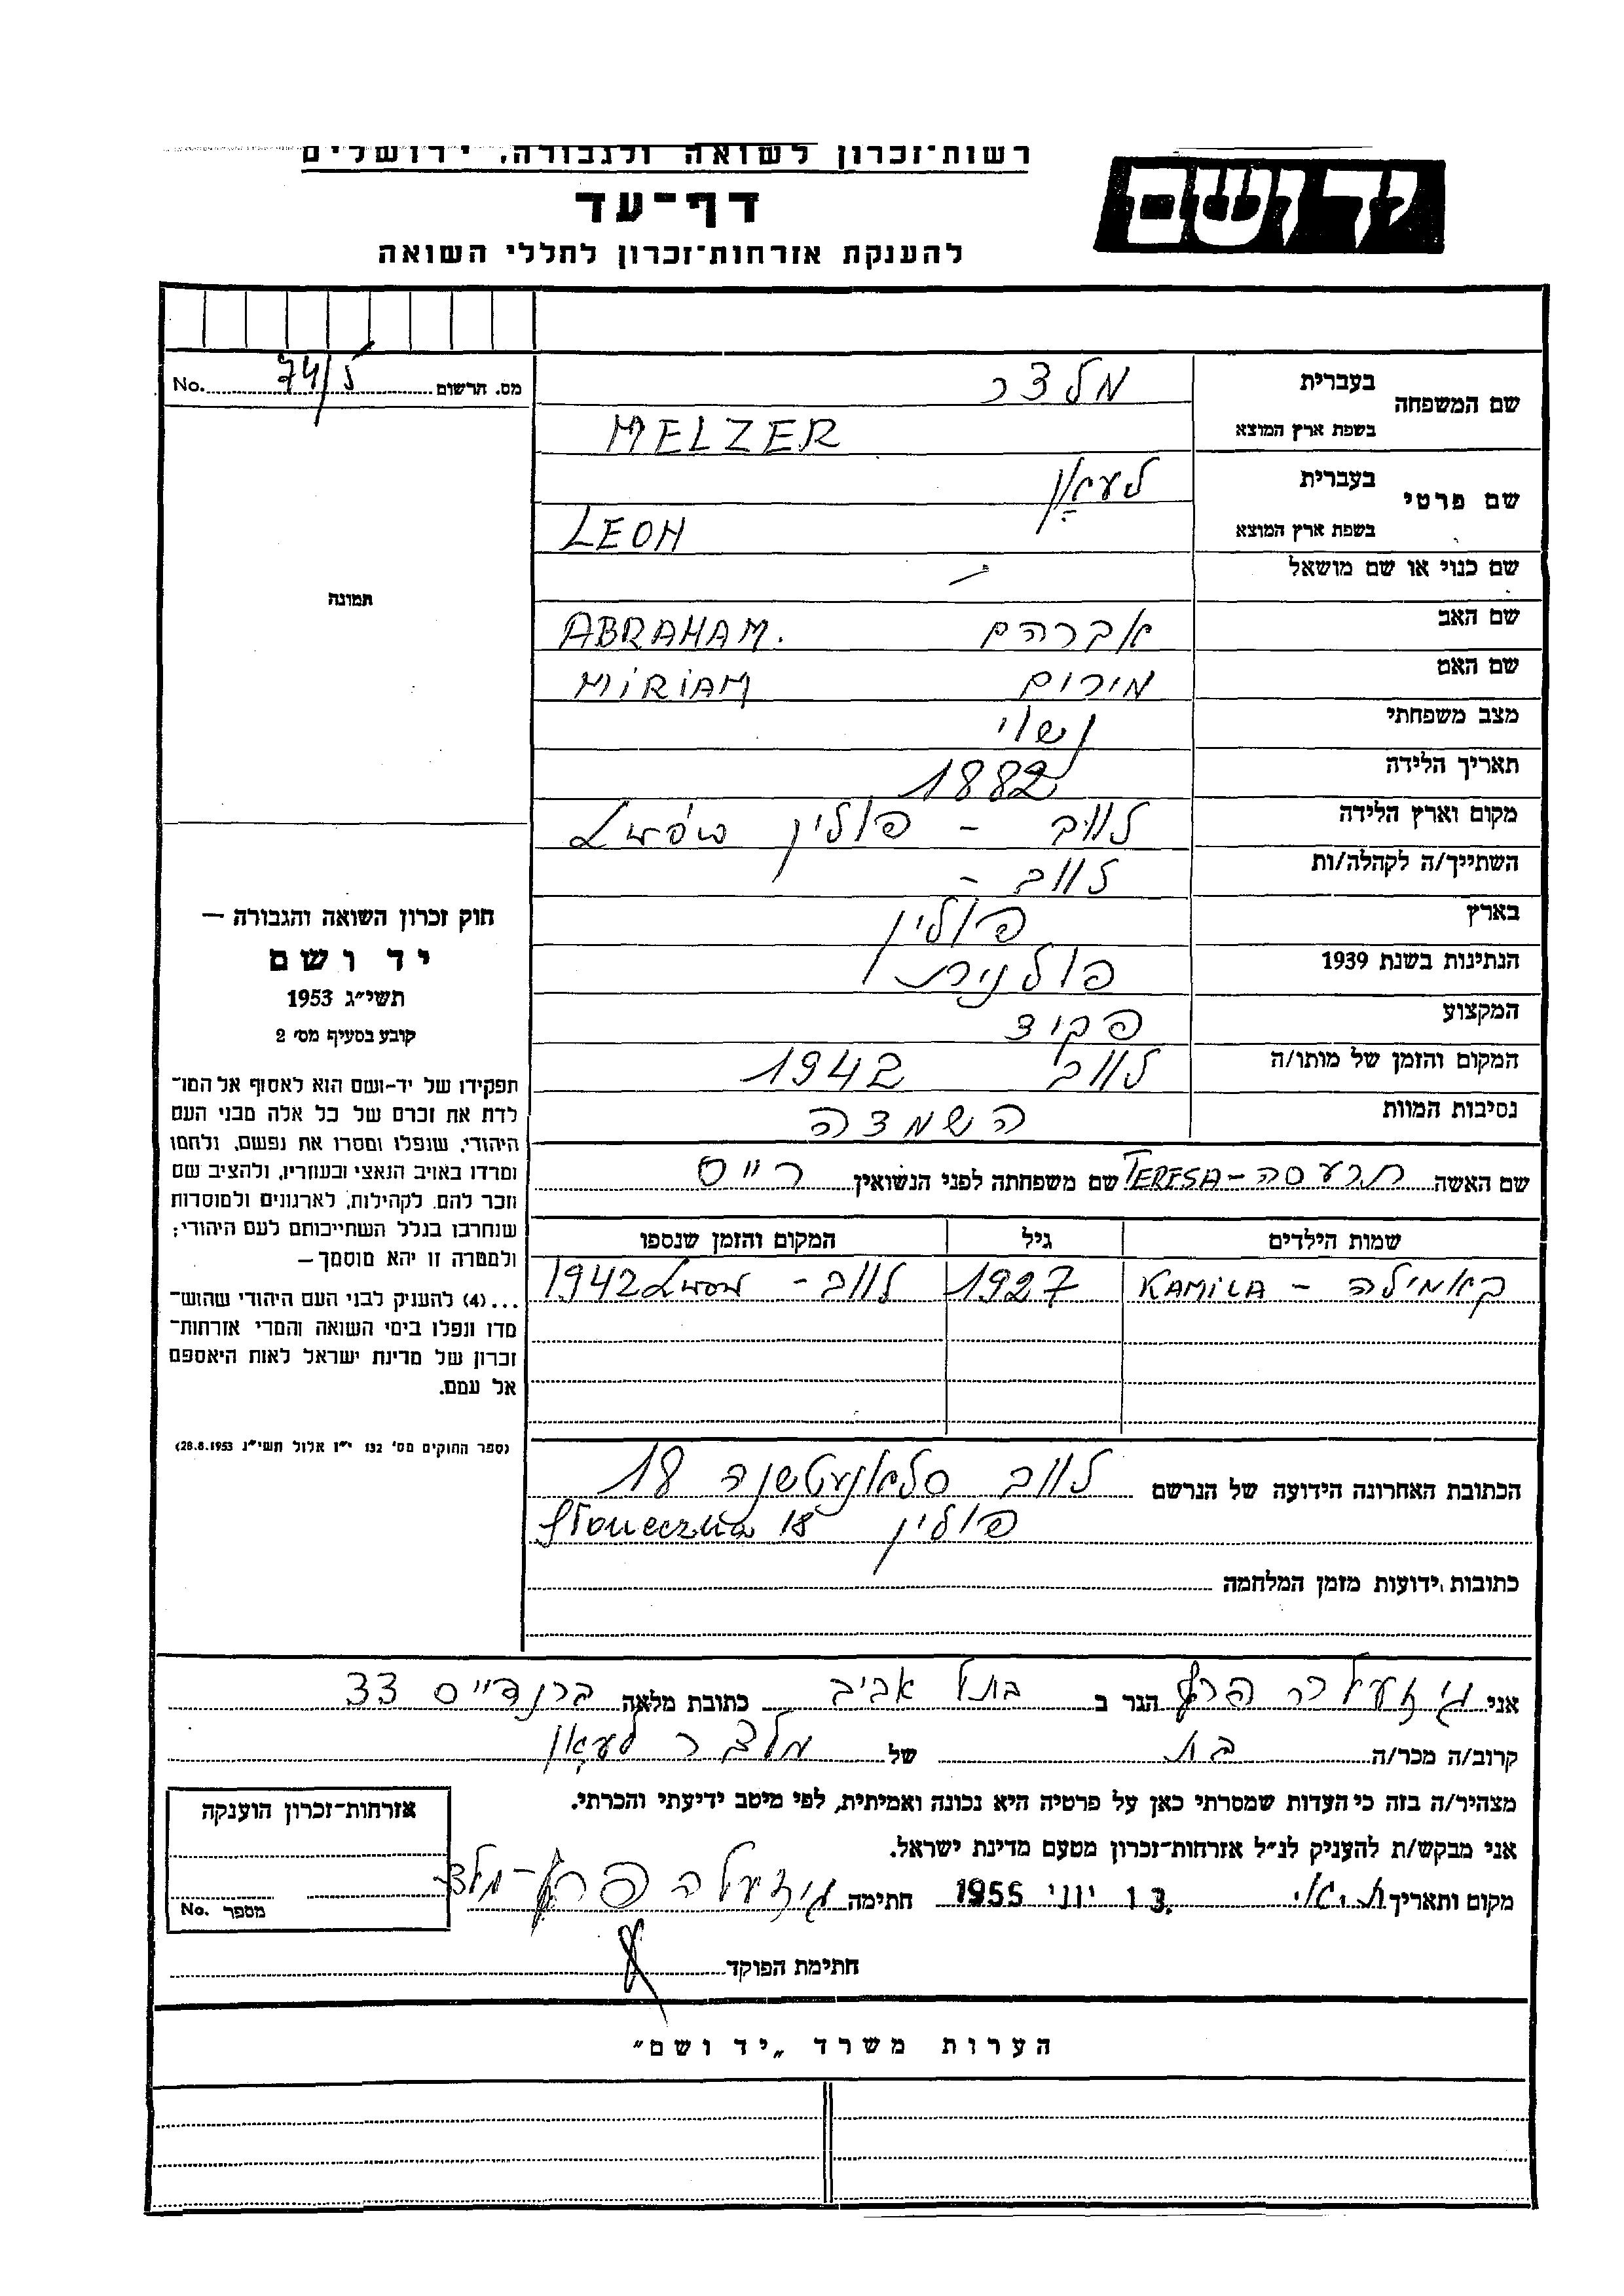 רשות־זכרון לשואה ולגבורה, ירושלים
יד ושם
דף־עד
להענקת אזרחות־זכרון לחללי השואה
מס. תרשום 74/5 No.
תמונה
שם המשפחה בעברית מלצר
בשפת ארץ המוצא MELZER
שם פרטי בעברית לעאָן
בשפת ארץ המוצא LEON
שם כנוי או שם מושאל -
שם האב אברהם ABRAHAM.
שם האם מירים MIRIAM
מצב משפחתי נשוי
תאריך הלידה 1882
מקום וארץ הלידה לווב - פולין Lwów
השתייך/ה לקהלה/ות לווב -
בארץ פולין
הנתינות בשנת 1939 פולנית
המקצוע פקיד
המקום והזמן של מותו/ה לווב 1942
נסיבות המוות השמדה
שם האשה תרעסה - TERESA שם משפחתה לפני הנשואין רייס
שמות הילדים גיל המקום והזמן שנספו
קאמילה - KAMILA 1927 לווב - Lwów 1942
הכתובת האחרונה הידועה של הנרשם לווב סלאנעטשנה 18
פולין Słoneczna 18
כתובות ידועות מזמן המלחמה
חוק זכרון השואה והגבורה —
יד ושם
תשי״ג 1953
קובע בסעיף מס׳ 2
תפקידו של יד-ושם הוא לאסוף אל המו־
לדת את זכרם של כל אלה מבני העם
היהודי, שנפלו ומסרו את נפשם, ולחמו
ומרדו באויב הנאצי ובעוזריו, ולהציב שם
וזכר להם, לקהילות, לארגונים ולמוסדות
שנחרבו בגלל השתייכותם לעם היהודי;
ולמטרה זו יהא מוסמך—
...(4) להעניק לבני העם היהודי שהוש־
מדו ונפלו בימי השואה והמרי אזרחות־
זכרון של מדינת ישראל לאות היאספם
אל עמם.
(ספר החוקים מס׳ 132 י״ז אלול תשי״ג 28.8.1953)
אני גיזעלה פרץ הגר ב בתל אביב כתובת מלאה ברנדייס 33
קרוב/ה מכר/ה בת של מלצר לעאָן
מצהיר/ה בזה כי העדות שמסרתי כאן על פרטיה היא נכונה ואמיתית, לפי מיטב ידיעתי והכרתי.
אני מבקש/ת להעניק לנ״ל אזרחות־זכרון מטעם מדינת ישראל.
מקום ותאריך 13 יוני 1955 חתימה גיזעלה פרץ-מלצר
חתימת הפוקד
אזרחות־זכרון הוענקה
מספר No.
הערות משרד „יד ושם״